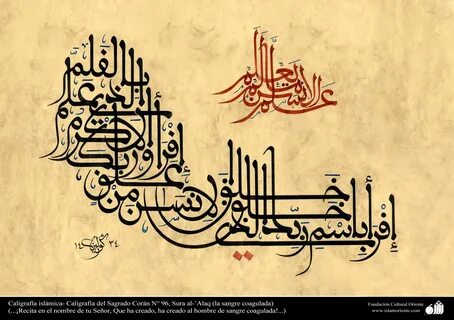 إقرأ باسم ربك الذي خلق
خلق الإنسان من علق
إقرأ وربك الأكرم
الذي علم بالقلم
علم الإنسان ما لم يعلم
Caligrafía islámica- Caligrafía del Sagrado Corán N° 96, Sura al-`Alaq (la sangre coagulada)
(...¡Recita en el nombre de tu Señor, Que ha creado, ha creado al hombre de sangre coagulada!...)
Fundación Cultural Oriente
www.islamoriente.com